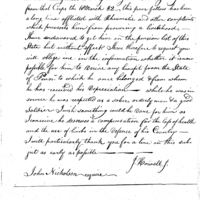 from that Capt to 10 March 82 this poor fellow has been
a long time afflicted with Rheumatic and other complaints
which prevents him from procuring a livelihood. I
have endeavored to get him in the pension list of this
State but without effect I have therefore to request you
will oblige me in the information whether it was
possible for him to receive any benefit from the State
of Penn to which he once belonged & from whom
he has received his Depreciation. While he was in
service he was respected as a sober, orderly man & a good
Soldier I wish something could be done for him as
I conceive he deserves a compensation for the loss of health
and the use of limbs in the Defence of his Country
I will particularly thank you for a line in this sub-
ject as early as possible
J Howell Jr
John Nicholson esquire